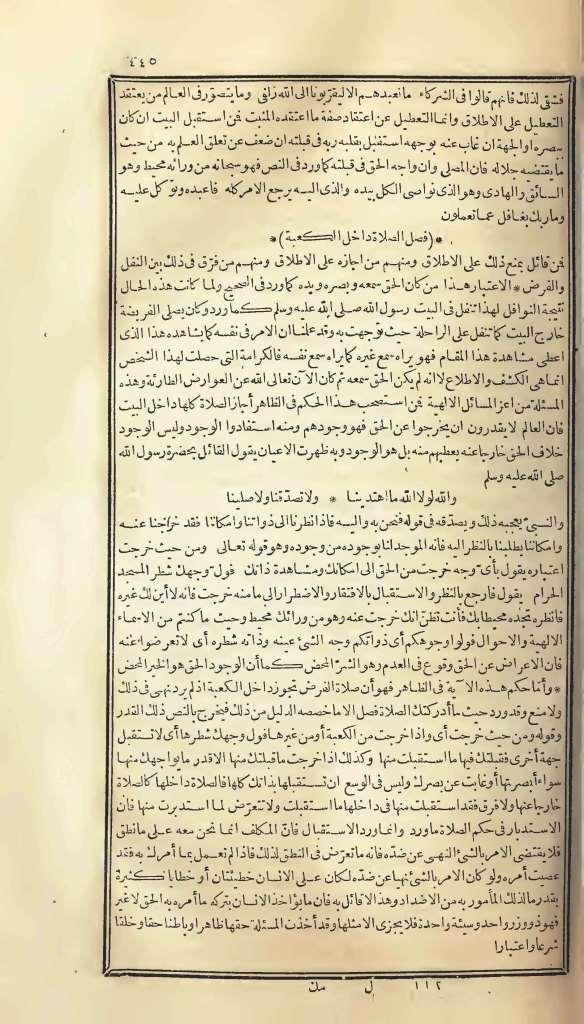 ٤٤٥
فشقى لذلك فانهم قالوا فى الشركاء مانعبدهم الاليقربونا الى الله زلفى وما يتصور فى العالم من يعتقد
التعطيل على الاطلاق وانما التعطيل عن اعتقاد صفة ما اعتقده المثبت فمن استقبل البيت ان كان
يبصره والجهة ان غاب عنه بوجهه استقبل بقلبه ربه فى قبلته ان ضعف عن تعلق العلم به من حيث
ما يقتضيه جلاله فان المصلى وان واجه الحق فى قبلته كما ورد فى النص فهو سبحانه من ورائه محيط وهو
السائق والهادى وهو الذى نواصى الكل بيده والذى اليه يرجع الامر كله فاعبده وتوكل عليه
وما ربك بغافل عما تعملون
*(فصل الصلاة داخل الكعبة)*
فمن قائل يمنع ذلك على الاطلاق ومنهم من اجازه على الاطلاق ومنهم من فرّق فى ذلك بين النفل
والفرض * الاعتبار هذا من كان الحق سمعه وبصره ويده كما ورد فى الصحيح ولما كانت هذه الحال
نتيجة النوافل لهذا تنفل فى البيت رسول الله صلى الله عليه وسلم كما ورد وكان يصلى الفريضة
خارج البيت كما تنفل على الراحلة حيث توجهت به وقد علمنا ان الامر فى نفسه كما يشاهده هذا الذى
اعطى مشاهدة هذا المقام فهو يراه سمع غيره كما يراه سمع نفسه فالكرامة التى حصلت لهذا الشخص
انما هى الكشف والاطلاع لا انه لم يكن الحق سمعه ثم كان الآن تعالى الله عن العوارض الطارئة وهذه
المسئلة من اعز المسائل الالهية فمن استصحب هذا الحكم فى الظاهر أجاز الصلاة كلها داخل البيت
فان العالم لا يقدرون ان يخرجوا عن الحق فهو وجودهم ومنه استفادوا الوجود وليس الوجود
خلاف الحق خارجا عنه يعطيهم منه بل هو الوجود وبه ظهرت الاعيان يقول القائل بحضرة رسول الله
صلى الله عليه وسلم
والله لولا الله ما اهتدينا * ولا تصدّقنا ولا صلينا
والنبىّ يعجبه ذلك ويصدّقه فى قوله فنحن به واليه فاذا نظرنا الى ذواتنا وامكاننا فقد خراجنا عنه
وامكاننا يطلبنا بالنظر اليه فانه الموجد لنا بوجوده من وجوده وهو قوله تعالى ومن حيث خرجت
اعتباره يقول بأىّ وجه خرجت من الحق الى امكانك ومشاهدة ذاتك فول وجهك شطر المسجد
الحرام يقول فارجع بالنظر والاستقبال بالافتقار والاضطرار الى ما منه خرجت فانه لا أين لك غيره
فانظره تجده محيطا بك فأنت تظنّ انك خرجت عنه وهو من ورائك محيط وحيث ما كنتم من الاسماء
الالهية والاحوال فولوا وجوهكم أى ذواتكم وجه الشئ عينه وذاته شطره أى لا تعرضوا عنه
فان الاعراض عن الحق وقوع فى العدم وهو الشرّ المحض كما أن الوجود الحق هو الخير المحض
* وأما حكم هذه الآية فى الظاهر فهو أن صلاة الفرض تجوز داخل الكعبة اذ لم يرد نهى فى ذلك
ولا منع وقد ورد حيث ما أدركتك الصلاة فصل الا ما خصصه الدليل من ذلك فيخرج بالنص ذلك القدر
وقوله ومن حيث خرجت أى واذا خرجت من الكعبة أو من غيرها فول وجهك شطرها أى لا تستقبل
جهة أخرى فقبلتك فيها ما استقبلت منها وكذلك اذا خرجت ما قبلتك منها الا قدر ما يواجهك منها
سواء أبصرتها أو غابت عن بصرك وليس فى الوسع ان تستقبلها بذاتك كلها فالصلاة داخلها كالصلاة
خارجا عنها ولا فرق فقد استقبلت منها فى داخلها ما استقبلت ولا تتعرّض لما استدبرت منها فان
الاستدبار فى حكم الصلاة ما ورد وانما ورد الاستقبال فانّ المكلف انما نحن معه على ما نطق
فلا يقتضى الامر بالشئ النهى عن ضدّه فانه ما تعرّض فى النطق لذلك فاذا لم تعمل بما أمرك به فقد
عصيت أمره ولو كان الامر بالشئ نهيا عن ضدّه لكان على الانسان خطيئتان أو خطايا كثيرة
بقدر ما لذلك المأمور به من الاضداد وهذا لا قائل به فان ما يؤاخذ الانسان بتركه ما أمره به الحق لا غير
فهو ذو وزر واحد وسيئة واحدة فلا يجزى الا مثلها وقد أخذت المسئلة حقها ظاهرا وباطنا حقا وخلقا
شرعا واعتبارا
١١٢ ل مك